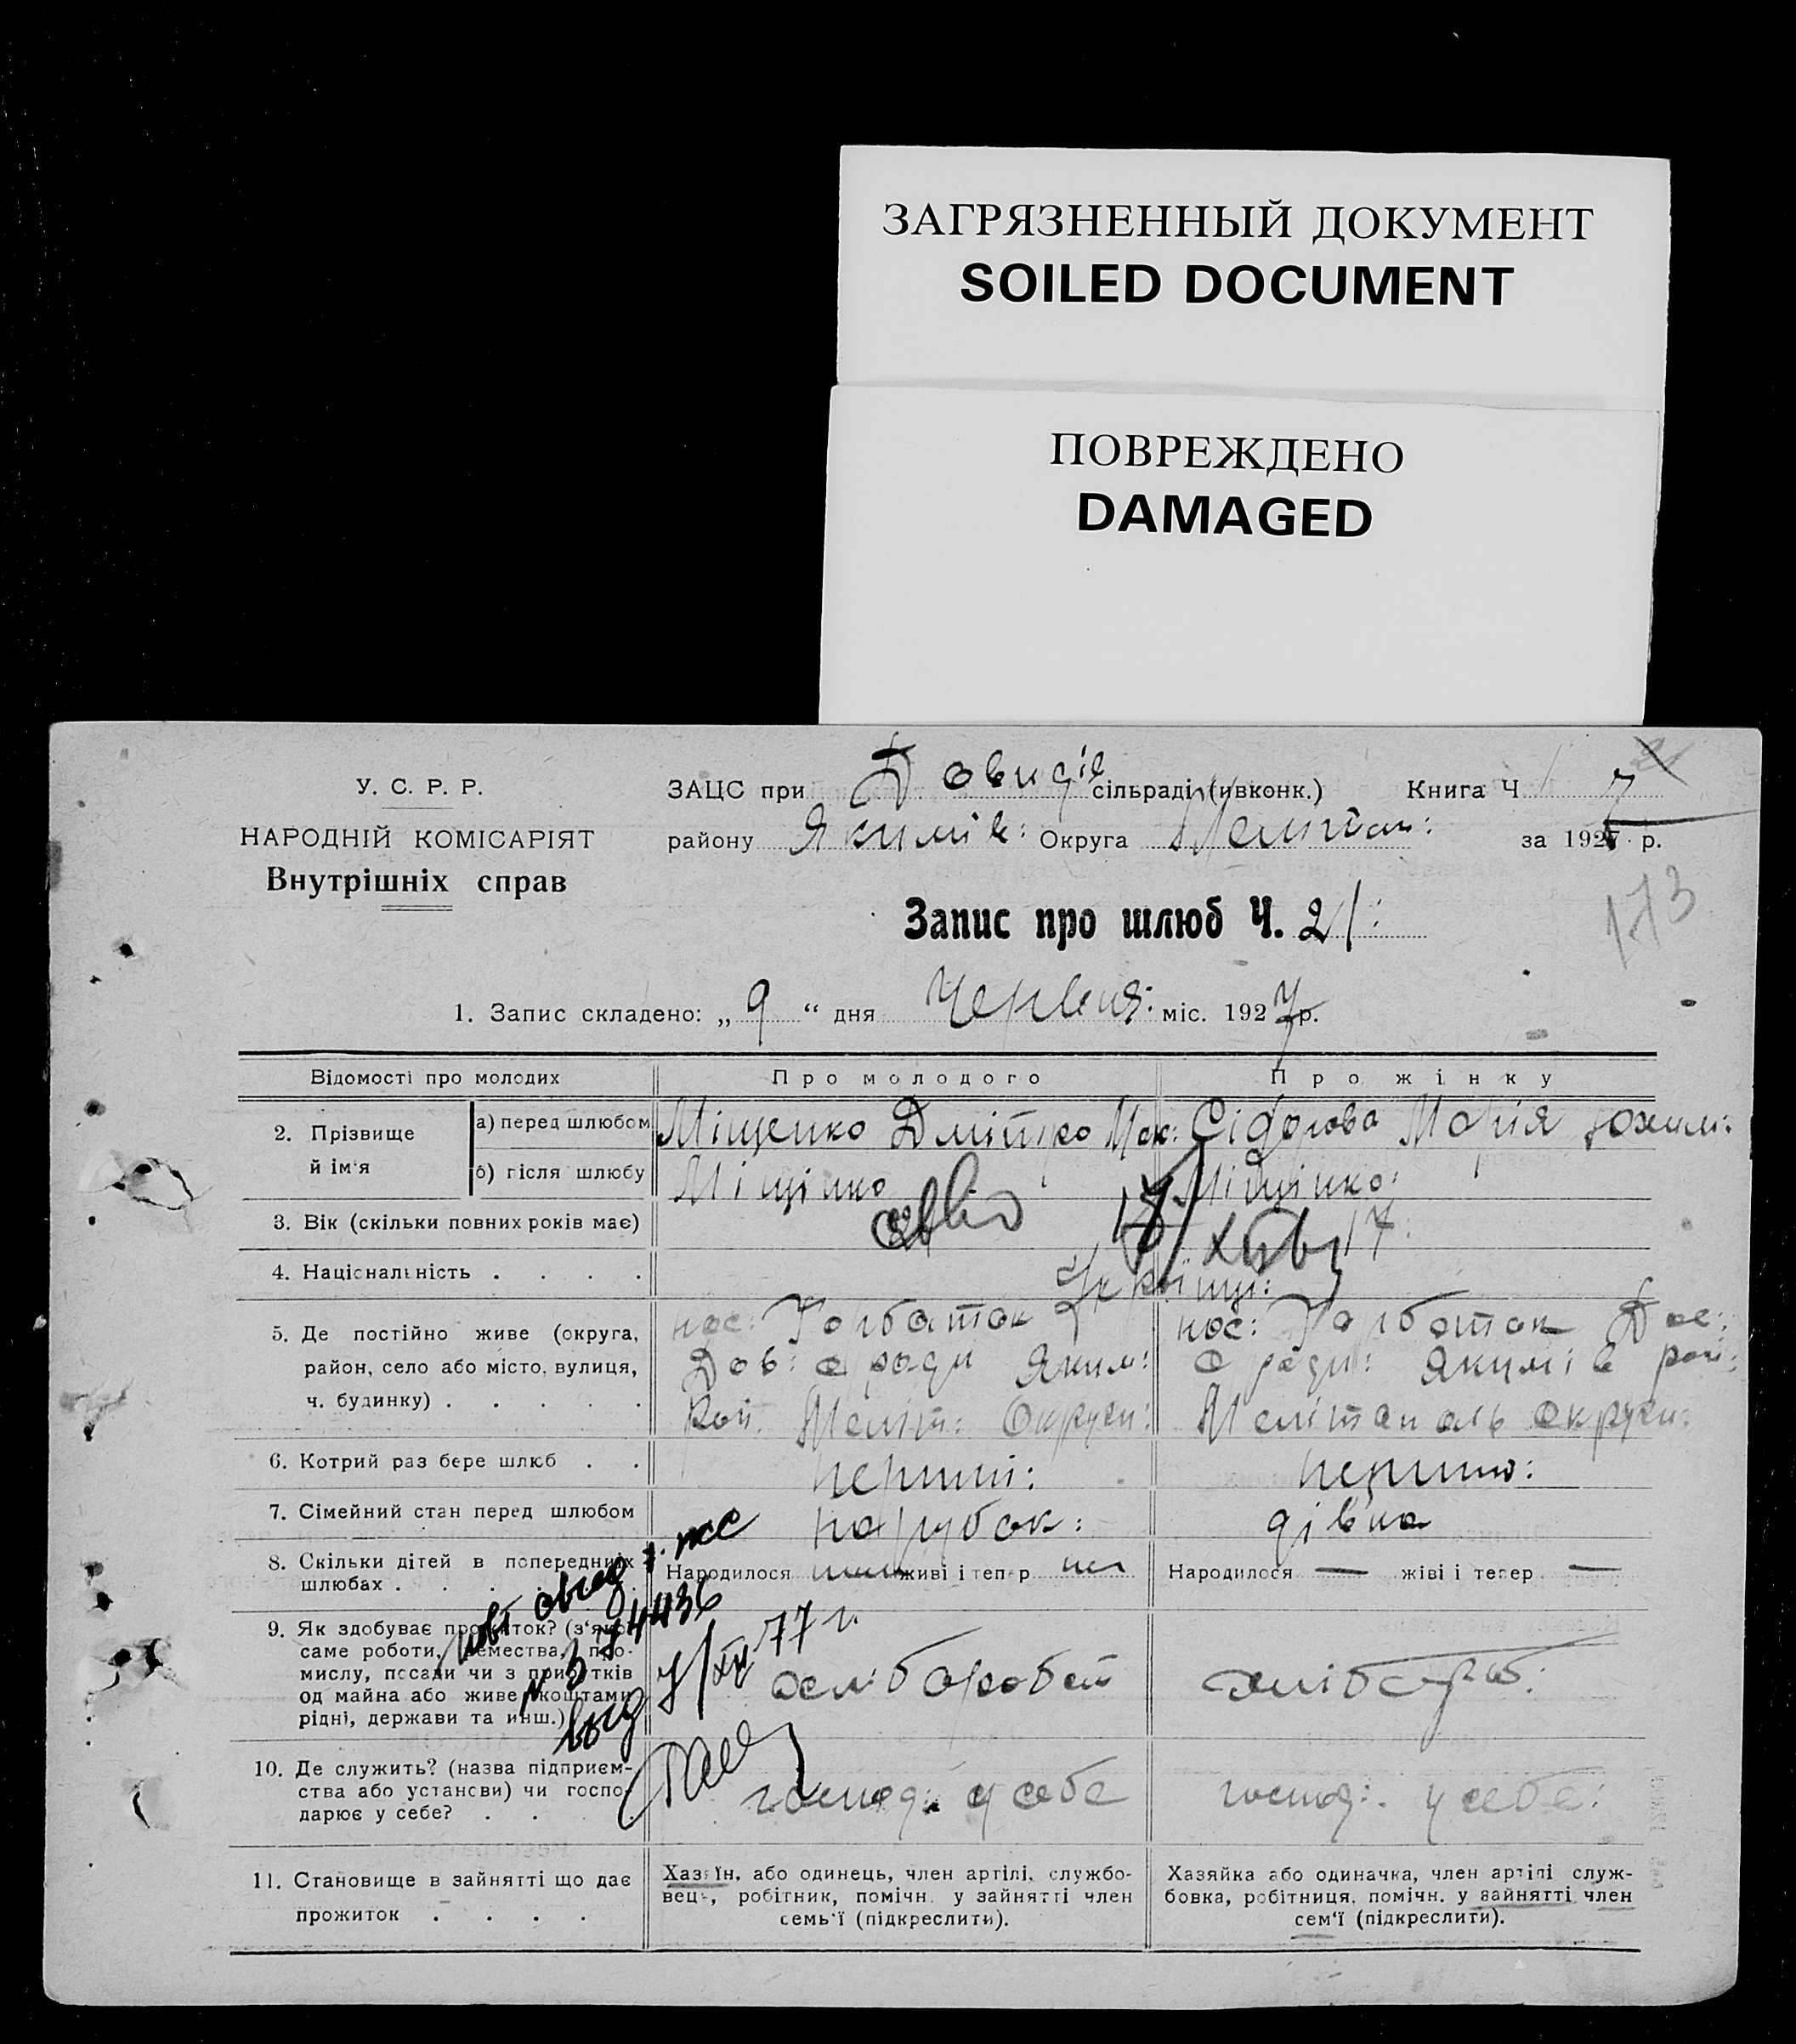 ЗАГРЯЗНЕННЫЙ ДОКУМЕНТ
SOILED DOCUMENT
ПОВРЕЖДЕНО
DAMAGED
У. С. Р. Р.
НАРОДНІЙ КОМІСАРІЯТ
Внутрішніх справ
ЗАЦС при Довидів сільраді (ивконк.) Книга Ч 1
району Якимів: Округа Меліт за 1927 р.
173
Запис про шлюб Ч. 21:
1. Запис складено: „ 9 “ дня Червня: міс. 1927 р.
Відомості про молодих Про молодого Про жінку
2. Прізвище й ім‘я
а) перед шлюбом Міщенко Дмітро Мак: Сідорова Марія Юхим:
б) після шлюбу Міщінко Міщінко:
3. Вік (скільки повних років має) 17
4. Національність . . . . Українці:
5. Де постійно живе (округа, пос: Горбаток пос: Горбаток
район, село або місто, вулиця, Дов: с ради Яким: с ради: Якимів рай:
ч. будинку) . . . . . Рай. Меліт: Округи: Мелітополь округи:
6. Котрий раз бере шлюб . . перший: першию:
7. Сімейний стан перед шлюбом парубок: дівка
8. Скільки дітей в попередніх Народилося живі і тепер Народилося — жіві і тепер —
шлюбах . . . .
74436
77 г.
9. Як здобуває прожиток? (з‘якої
саме роботи, ремества, про-
мислу, посади чи з прибутків
од майна або живе коштами
рідні, держави та инш.)
хліборобст хлібороб:
10. Де служить? (назва підприєм-
ства або установи) чи госпо-
дарює у себе? . . .
господ: у себе господ: у себе:
11. Становище в зайнятті що дає
прожиток . . . .
Хазяїн, або одинець, член артілі, службо-
вець, робітник, помічн. у зайнятті член
семь‘ї (підкреслити).
Хазяйка або одиначка, член артілі служ-
бовка, робітниця, помічн. у зайнятті член
сем‘ї (підкреслити).